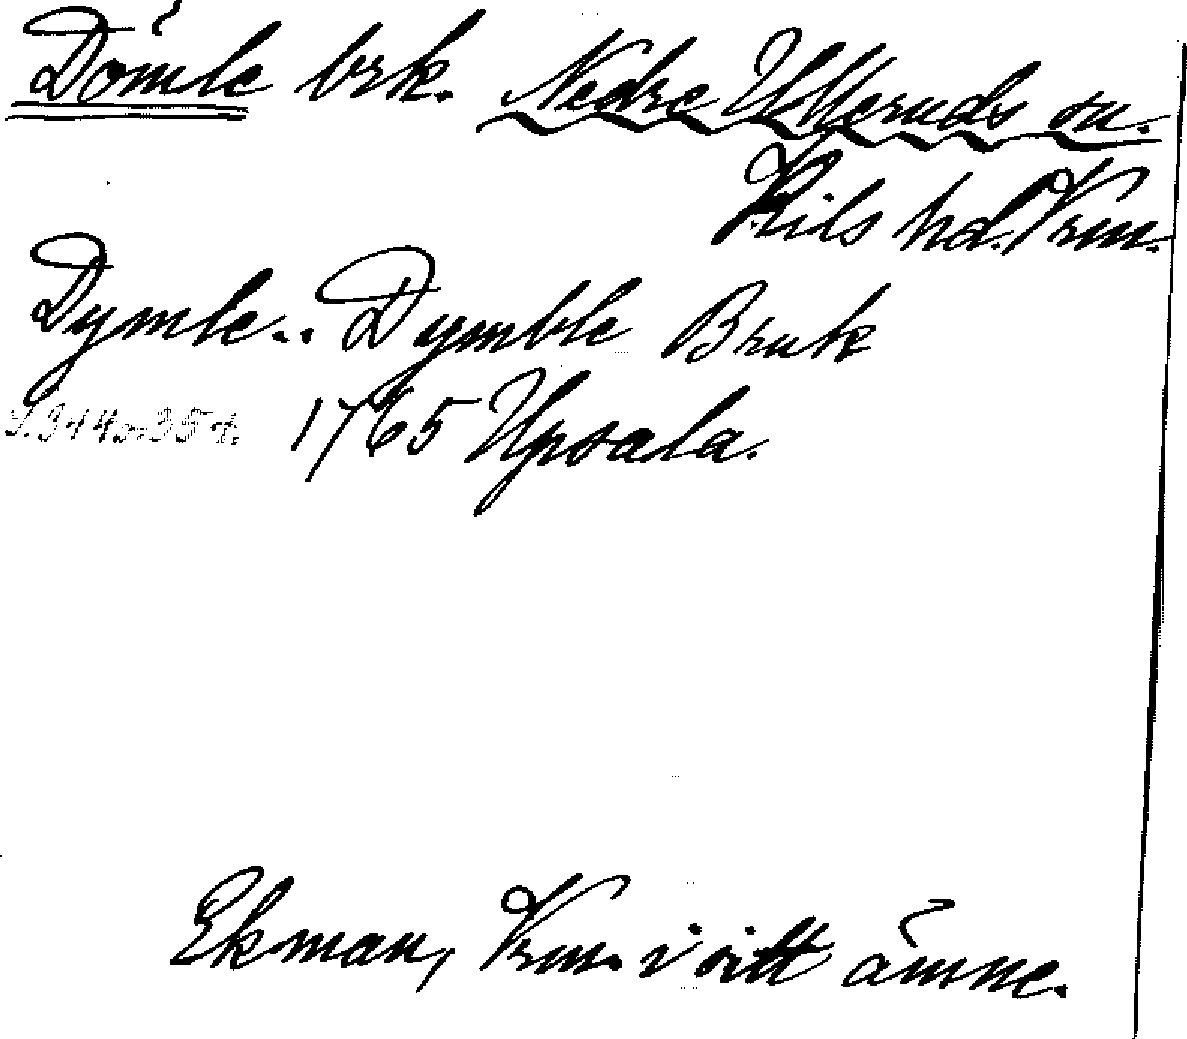 Dömle brk. Nedre Ulleruds sn.
Kils hd. Vrm.
Dymle.. Dymble Bruk
S. 344 o. 354. 1765 Upsala.
Ekman, Vrm. i sitt ämne.